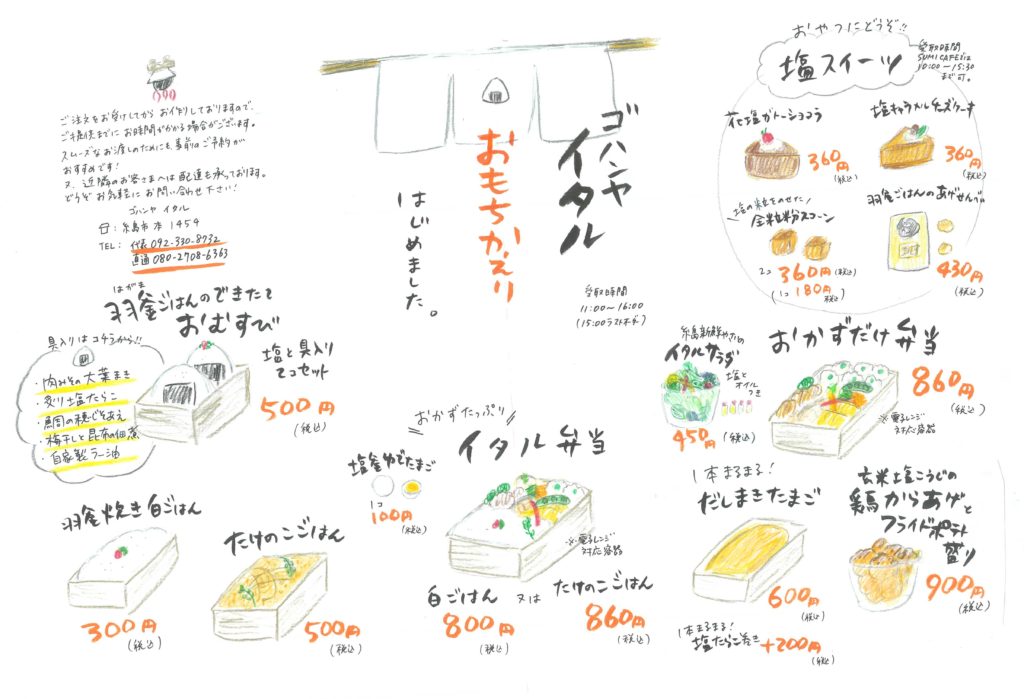 ゴハンヤ
イタル
おもちかえり
はじめました。
受取時間
11:00〜16:00
(15:00ラストオーダー)
ご注文をお受けしてから お作りしておりますので、
ご提供までに お時間がかかる場合がございます。
スムーズなお渡しのためにも、事前のご予約が
おすすめです!
又、近隣のお客さまへは 配達も承っております。
どうぞ お気軽に お問い合わせ下さい!
ゴハンヤ イタル
糸島市本 1454
TEL: 代表 092-330-8732
直通 080-2708-6363
おやつにどうぞ!!
塩スイーツ
受取時間
SUMI CAFEは
10:00〜15:30
まで可。
花塩ガトーショコラ
360円
(税込)
塩キャラメルチーズケーキ
360円
(税込)
塩の粒をのせた
全粒粉スコーン
2コ 360円(税込)
(1コ 180円 税込)
羽釜ごはんのあげせんべい
430円
(税込)
はがま
羽釜ごはんのできたて
おむすび
具入りはコチラから!!
・肉みその大葉まき
・炙り塩たらこ
・梅干しと昆布の佃煮
・自家製ラー油
塩と具入り
2コセット
500円
(税込)
羽釜炊き白ごはん
300円
(税込)
たけのこごはん
500円
(税込)
おかずたっぷり
イタル弁当
※電子レンジ
対応容器
白ごはん 又は たけのこごはん
800円 860円
(税込) (税込)
塩釜ゆでたまご
1コ
100円
(税込)
糸島新鮮やさいの
イタルサラダ
塩と
オイル
つき
450円 (税込)
おかずだけ弁当
860円
(税込)
※電子レンジ
対応容器
1本まるまる!
だしまきたまご
600円
(税込)
1本まるまる!
塩たらこ巻き +200円
(税込)
玄米塩こうじの
鶏からあげと
フライドポテト
盛り
900円
(税込)